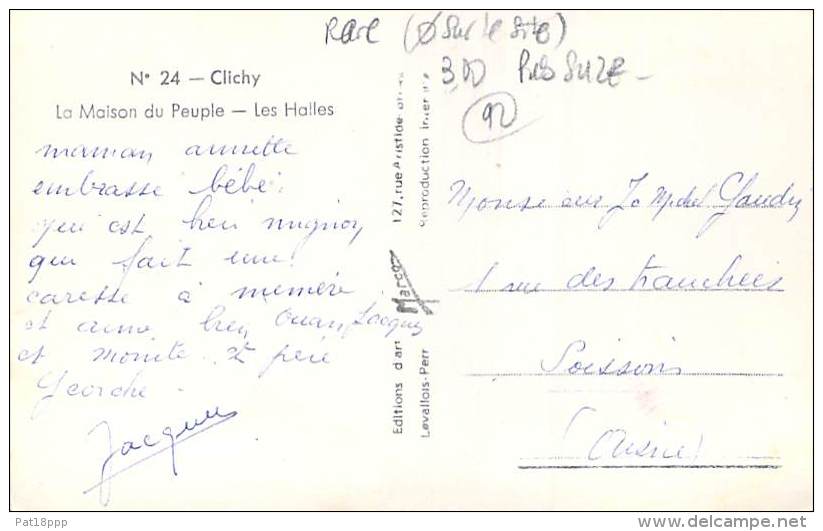 Rare (Ø sur le site)
3,00
N° 24 — Clichy
La Maison du Peuple — Les Halles
92
maman annette
embrasse bébé
qui est bien mignon
qui fait une
caresse à mémère
et aime bien Jacques
et père
Jacques
Editions d'art Marco 127, rue Aristide
Levallois-Perr Reproduction inter
Monsieur J Michel Gaudry
1 rue des tranchées
Soissons
(Aisne)
Pat18ppp
delcampe.net